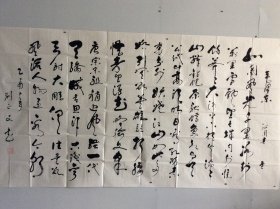 北国风光千里冰封
万里雪飘望长城内外
山舞银蛇原驰蜡象
公试比高须晴日看红装素
裹分外妖娆江山如此多
娇引无数英雄竞折腰
惜秦皇汉武略输文采
唐宗宋祖稍逊风骚一代
天骄成吉思汗只识弯
弓射大雕俱往矣数
风流人物还看今朝